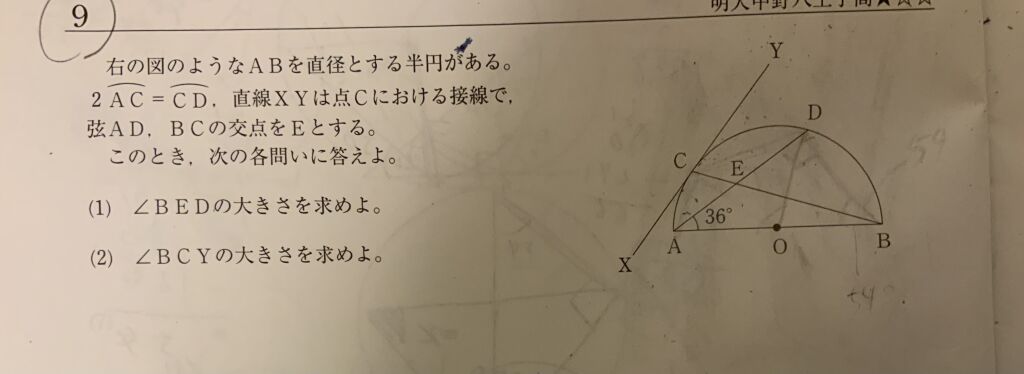 9
右の図のようなABを直径とする半円がある。
2AC=CD，直線XYは点Cにおける接線で，
弦AD，BCの交点をEとする。
このとき，次の各問いに答えよ。
(1) ∠BEDの大きさを求めよ。
(2) ∠BCYの大きさを求めよ。
Y
D
C
E
36°
A
O
B
X
54°